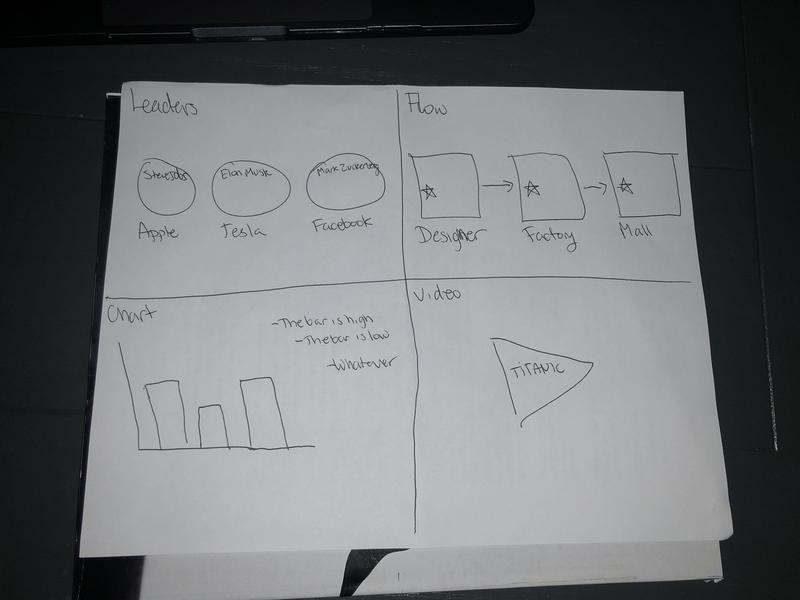 Leaders
Steve Jobs
Elon Musk
Mark Zuckerberg
Apple
Tesla
Facebook
Flow
Designer
Factory
Mall
Chart
-The bar is high
-The bar is low
-Whatever
Video
TITANIC